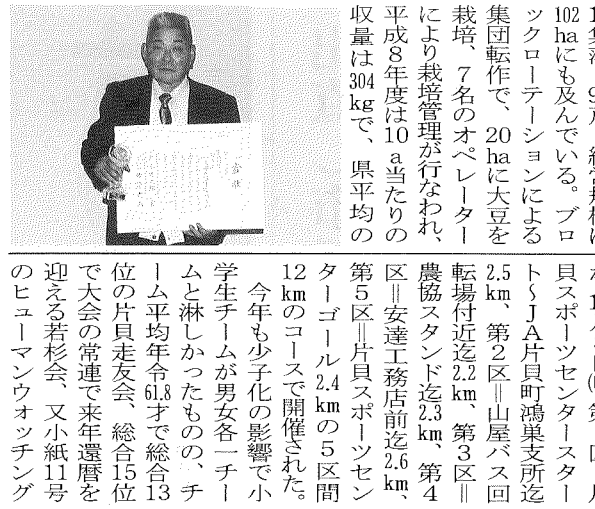 102haにも及んでいる。ブロ
ックローテーションによる
集団転作で、20haに大豆を
栽培、7名のオペレーター
により栽培管理が行なわれ、
平成8年度は10a当たりの
収量は304kgで、県平均の
貝スポーツセンタースター
ト〜JA片貝町鴻巣支所迄
2.5km、第2区＝山屋バス回
転場付近迄2.2km、第3区＝
農協スタンド迄2.3km、第4
区＝安達工務店前迄2.6km、
第5区＝片貝スポーツセン
ターゴール2.4kmの5区間
12kmのコースで開催された。
今年も少子化の影響で小
学生チームが男女各一チー
ムと淋しかったものの、チ
ーム平均年令61.8才で総合13
位の片貝走友会、総合15位
で大会の常連で来年還暦を
迎える若杉会、又小紙11号
のヒューマンウォッチング